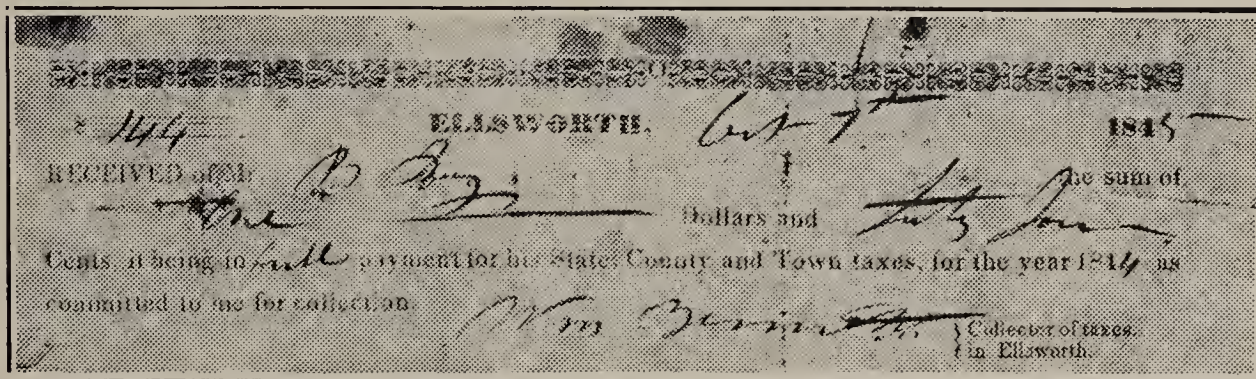 144 ELLSWORTH, 1st 1845
RECEIVED of Mr B the sum of
One Dollars and forty four
Cents, it being in full payment for his State, County and Town taxes, for the year 1844 as
committed to me for collection.
Wm
} Collector of taxes,
in Ellsworth.